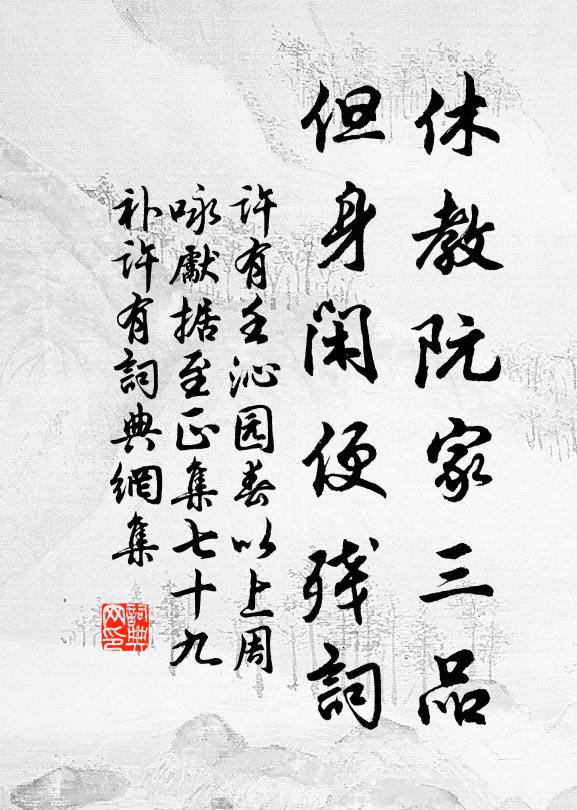 休教阮家三品
但身闲便残詞
許有壬沁园春以上周
咏獻据至正集七十九
补許有詞典網集
詞典网印